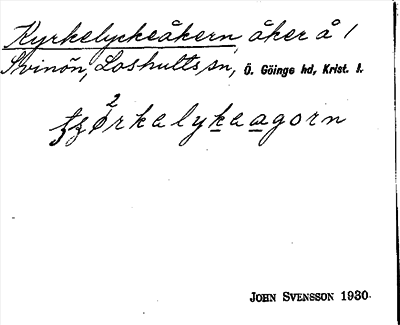 Kyrkelyckeåkern, åker å 1
Svinön, Loshults sn, Ö. Göinge hd, Krist. l.
2
ɟʒørkelykeagorn
JOHN SVENSSON 1930.